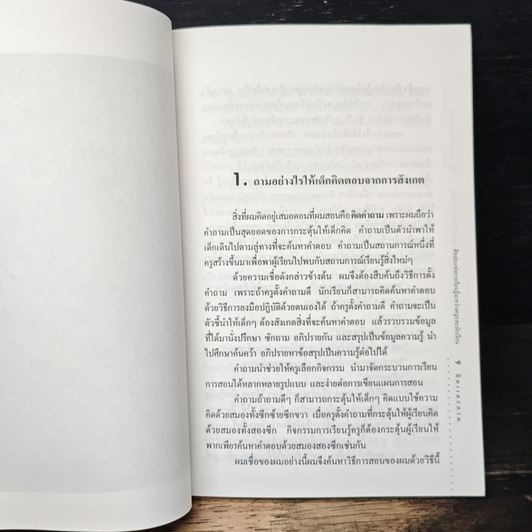 1. ถามอย่างไรให้เด็กคิดตอบจากการสังเกต
สิ่งที่ผมคิดอยู่เสมอตอนที่ผมสอนคือคิดคำถาม เพราะผมถือว่า
คำถามเป็นสุดยอดของการกระตุ้นให้เด็กคิด คำถามเป็นตัวนำพาให้
เด็กเดินไปตามสู่ทางที่จะค้นหาคำตอบ คำถามเป็นสถานการณ์หนึ่งที่
ครูสร้างขึ้นมาเพื่อพาผู้เรียนไปพบกับสถานการณ์เรียนรู้สิ่งใหม่ๆ
ด้วยความเชื่อดังกล่าวข้างต้น ผมจึงต้องสืบค้นถึงวิธีการตั้ง
คำถาม เพราะถ้าครูตั้งคำถามดี นักเรียนก็สามารถคิดค้นหาคำตอบ
ด้วยวิธีการลงมือปฏิบัติด้วยตนเองได้ ถ้าครูตั้งคำถามดี คำถามจะเป็น
ตัวชี้นำให้เด็กๆ ต้องสังเกตสิ่งที่จะค้นหาคำตอบ แล้วรวบรวมข้อมูล
ที่ได้มานั่งปรึกษา ซักถาม อภิปรายกัน และสรุปเป็นข้อมูลความรู้ นำ
ไปศึกษาค้นคว้า อภิปรายหาข้อสรุปเป็นความรู้ต่อไปได้
คำถามนำช่วยให้ครูเลือกกิจกรรม นำมาจัดกระบวนการเรียน
การสอนได้หลากหลายรูปแบบ และง่ายต่อการเขียนแผนการสอน
คำถามถ้าถามดีๆ ก็สามารถกระตุ้นให้เด็กๆ คิดแบบใช้ความ
คิดด้วยสมองทั้งซีกซ้ายซีกขวา เมื่อครูตั้งคำถามที่กระตุ้นให้ผู้เรียนคิด
ด้วยสมองทั้งสองซีก กิจกรรมการเรียนรู้ครูก็ต้องกระตุ้นผู้เรียนให้
พากเพียรค้นหาคำตอบด้วยสมองสองซีกเช่นกัน
ผมเชื่อของผมอย่างนี้ผมจึงค้นหาวิธีการสอนของผมด้วยวิธีนี้